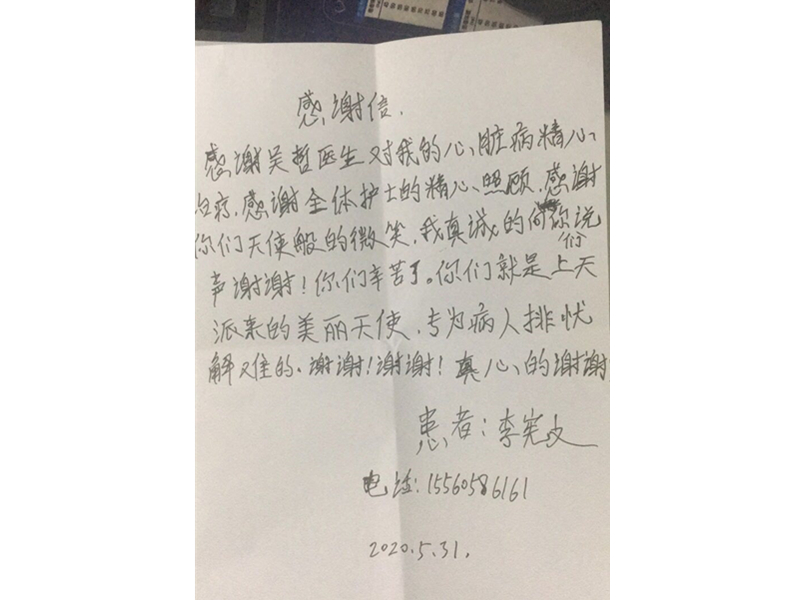 感谢信.
感谢吴哲医生对我的心脏病精心
治疗.感谢全体护士的精心照顾.感谢
你们天使般的微笑,我真诚的向你们说
声谢谢!你们辛苦了。你们就是上天
派来的美丽天使.专为病人排忧
解难的.谢谢!谢谢!真心的谢谢
患者:李宪文
电话:15560586161
2020.5.31.